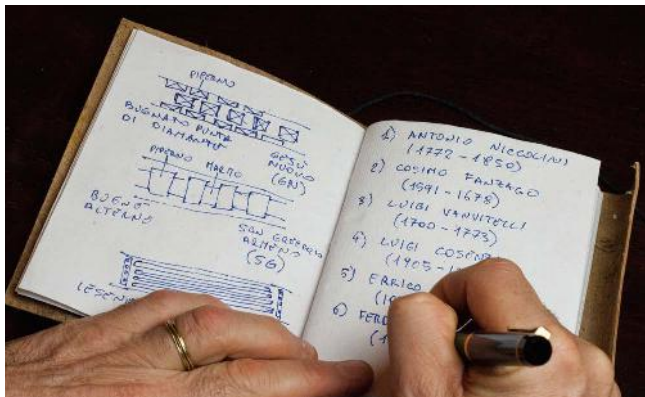 PIPERNO
BUGNATO PUNTA
DI DIAMANTE
GESÙ
NUOVO
(GN)
PIPERNO MARMO
BUGNE
ALTERNE
SAN GREGORIO
ARMENO
(SG)
LESENE
1) ANTONIO NICCOLINI
(1772 - 1850)
2) COSIMO FANZAGO
(1591 - 1678)
3) LUIGI VANVITELLI
(1700 - 1773)
4) LUIGI COSENZA
(1905 -
5) ERRICO
6) FERD